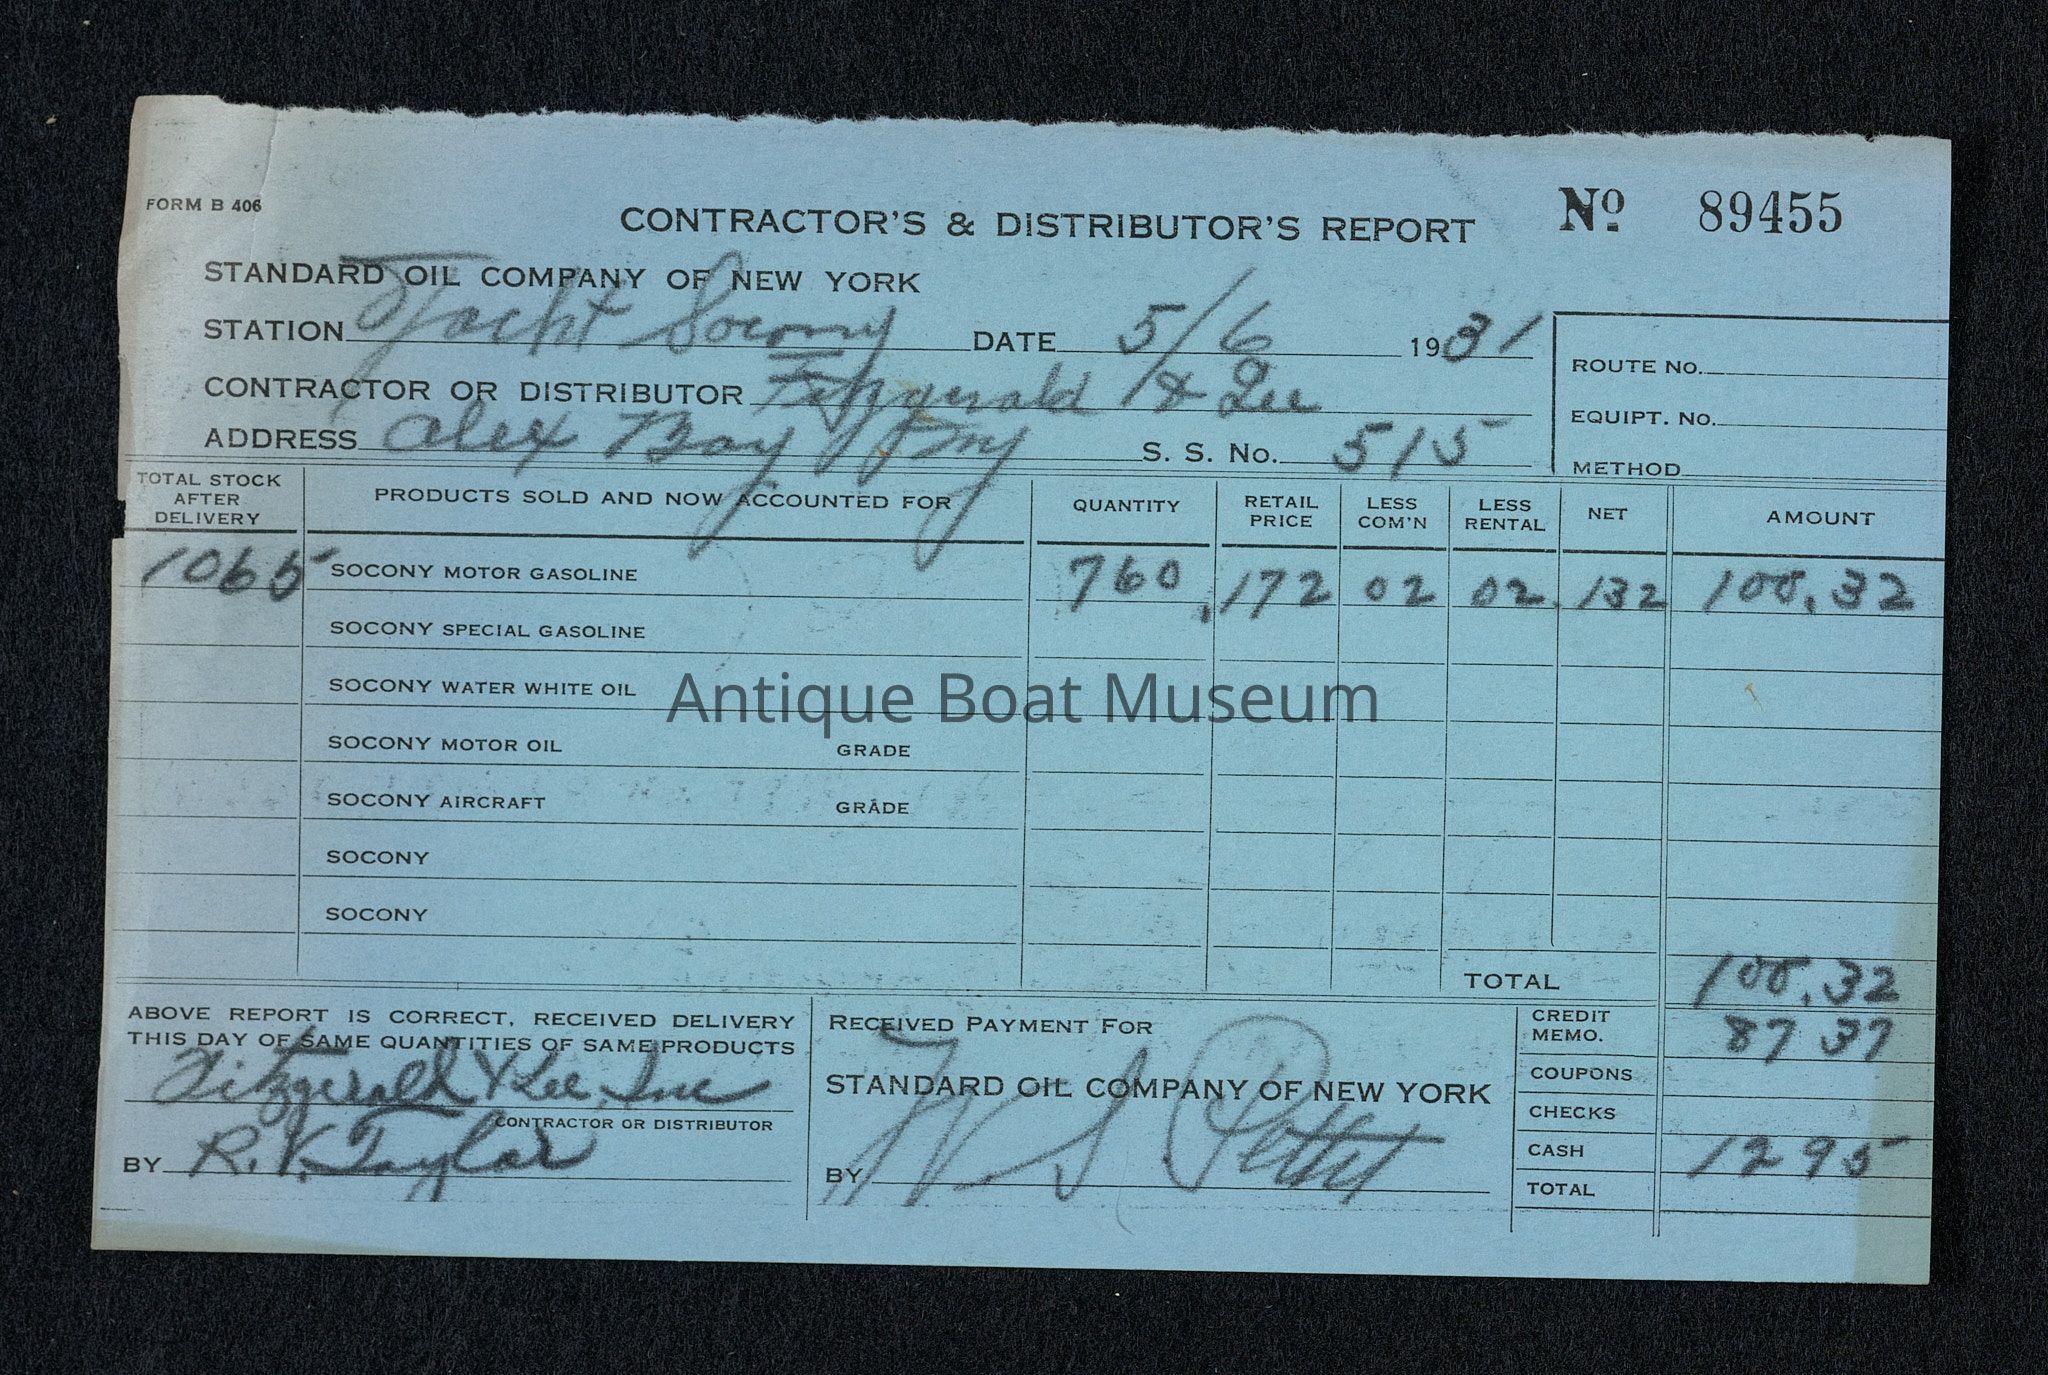 FORM B 406
CONTRACTOR'S & DISTRIBUTOR'S REPORT
No 89455
STANDARD OIL COMPANY OF NEW YORK
STATION Yacht Socony DATE 5/6 1931
CONTRACTOR OR DISTRIBUTOR Fitzgerald & Lee
ADDRESS Alex Bay NY S. S. No. 515
ROUTE No.
EQUIPT. No.
METHOD
TOTAL STOCK AFTER DELIVERY PRODUCTS SOLD AND NOW ACCOUNTED FOR QUANTITY RETAIL PRICE LESS COM'N LESS RENTAL NET AMOUNT
1065 SOCONY MOTOR GASOLINE 760 .172 02 02 .132 100.32
SOCONY SPECIAL GASOLINE
SOCONY WATER WHITE OIL
Antique Boat Museum
SOCONY MOTOR OIL GRADE
SOCONY AIRCRAFT GRADE
SOCONY
SOCONY
TOTAL 100.32
ABOVE REPORT IS CORRECT, RECEIVED DELIVERY
THIS DAY OF SAME QUANTITIES OF SAME PRODUCTS
Fitzgerald & Lee, Inc
CONTRACTOR OR DISTRIBUTOR
BY R. V. Taylor
RECEIVED PAYMENT FOR
STANDARD OIL COMPANY OF NEW YORK
BY W S Pettit
CREDIT MEMO. 87 37
COUPONS
CHECKS
CASH 12 95
TOTAL